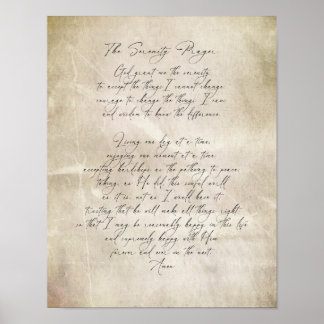 The Serenity Prayer
God grant me the serenity
to accept the things I cannot change
courage to change the things I can
and wisdom to know the difference.
Living one day at a time,
enjoying one moment at a time
accepting hardships as the pathway to peace,
taking, as He did, this sinful world
as it is, not as I would have it,
trusting that he will make all things right
so that I may be reasonably happy in this life
and supremely happy with Him
forever and ever in the next.
Amen